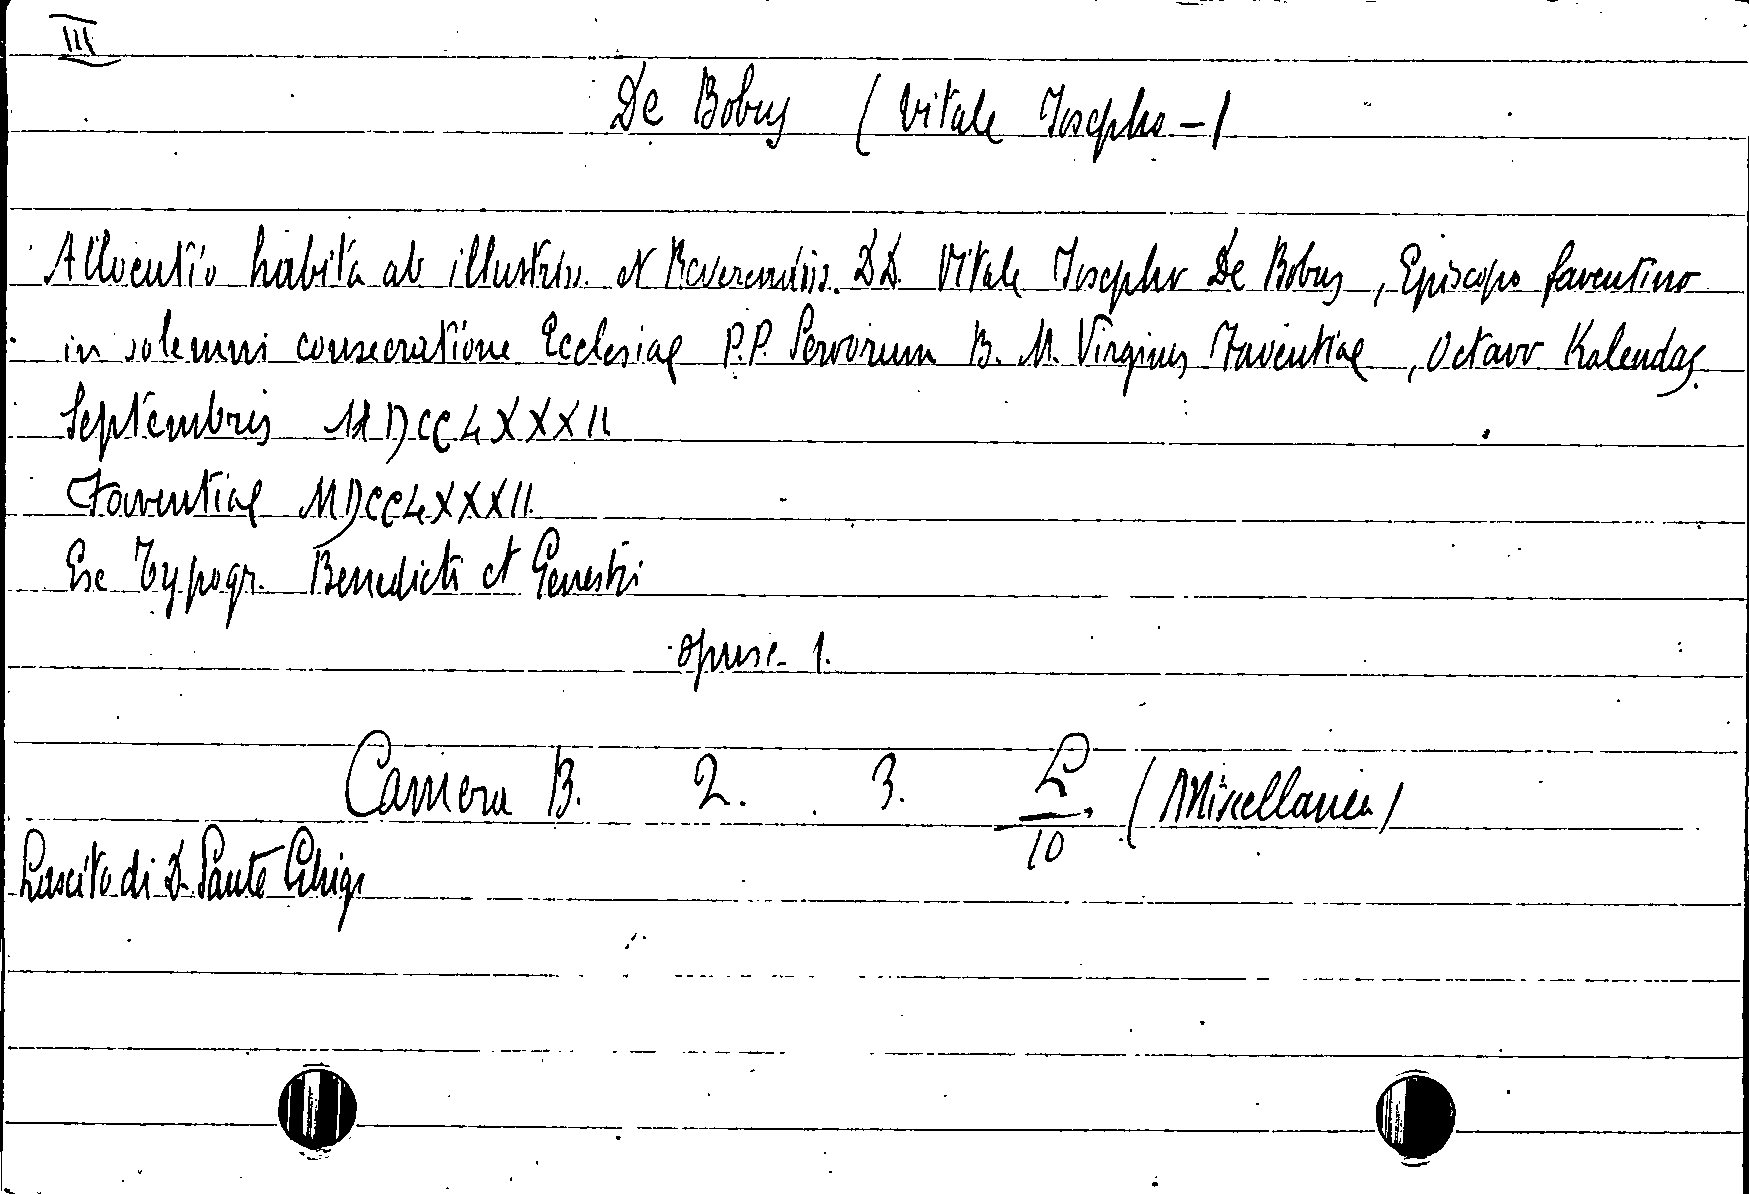 III
De Bobus (Vitale Josepho -)
Allocutio habita ab illustriss. et Reverendiss. DD. Vitale Josepho De Bobus, Episcopo faventino
in solemni consecratione Ecclesiae P.P. Servorum B. M. Virginis Faventiae, Octavo Kalendas
Septembris MDCCLXXXII
Faventiae MDCCLXXXII.
Ex Typogr. Benedicti et Genestri
opusc. 1.
Camera B. 2. 3. L/10. (Miscellanea)
Lascito di D. Sante Ghigi